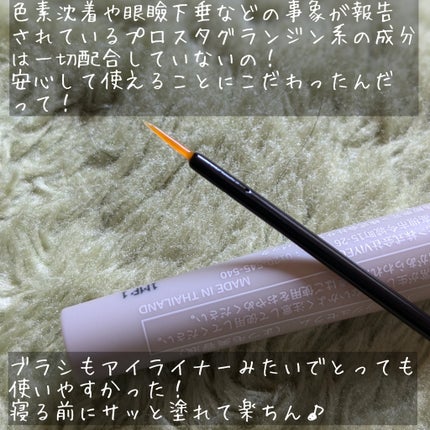 色素沈着や眼瞼下垂などの事象が報告
されているプロスタグランジン系の成分
は一切配合していないの！
安心して使えることにこだわったんだ
って！
1MF1
MADE IN THAILAND
ブラシもアイライナーみたいでとっても
使いやすかった！
寝る前にサッと塗れて楽ちん♪